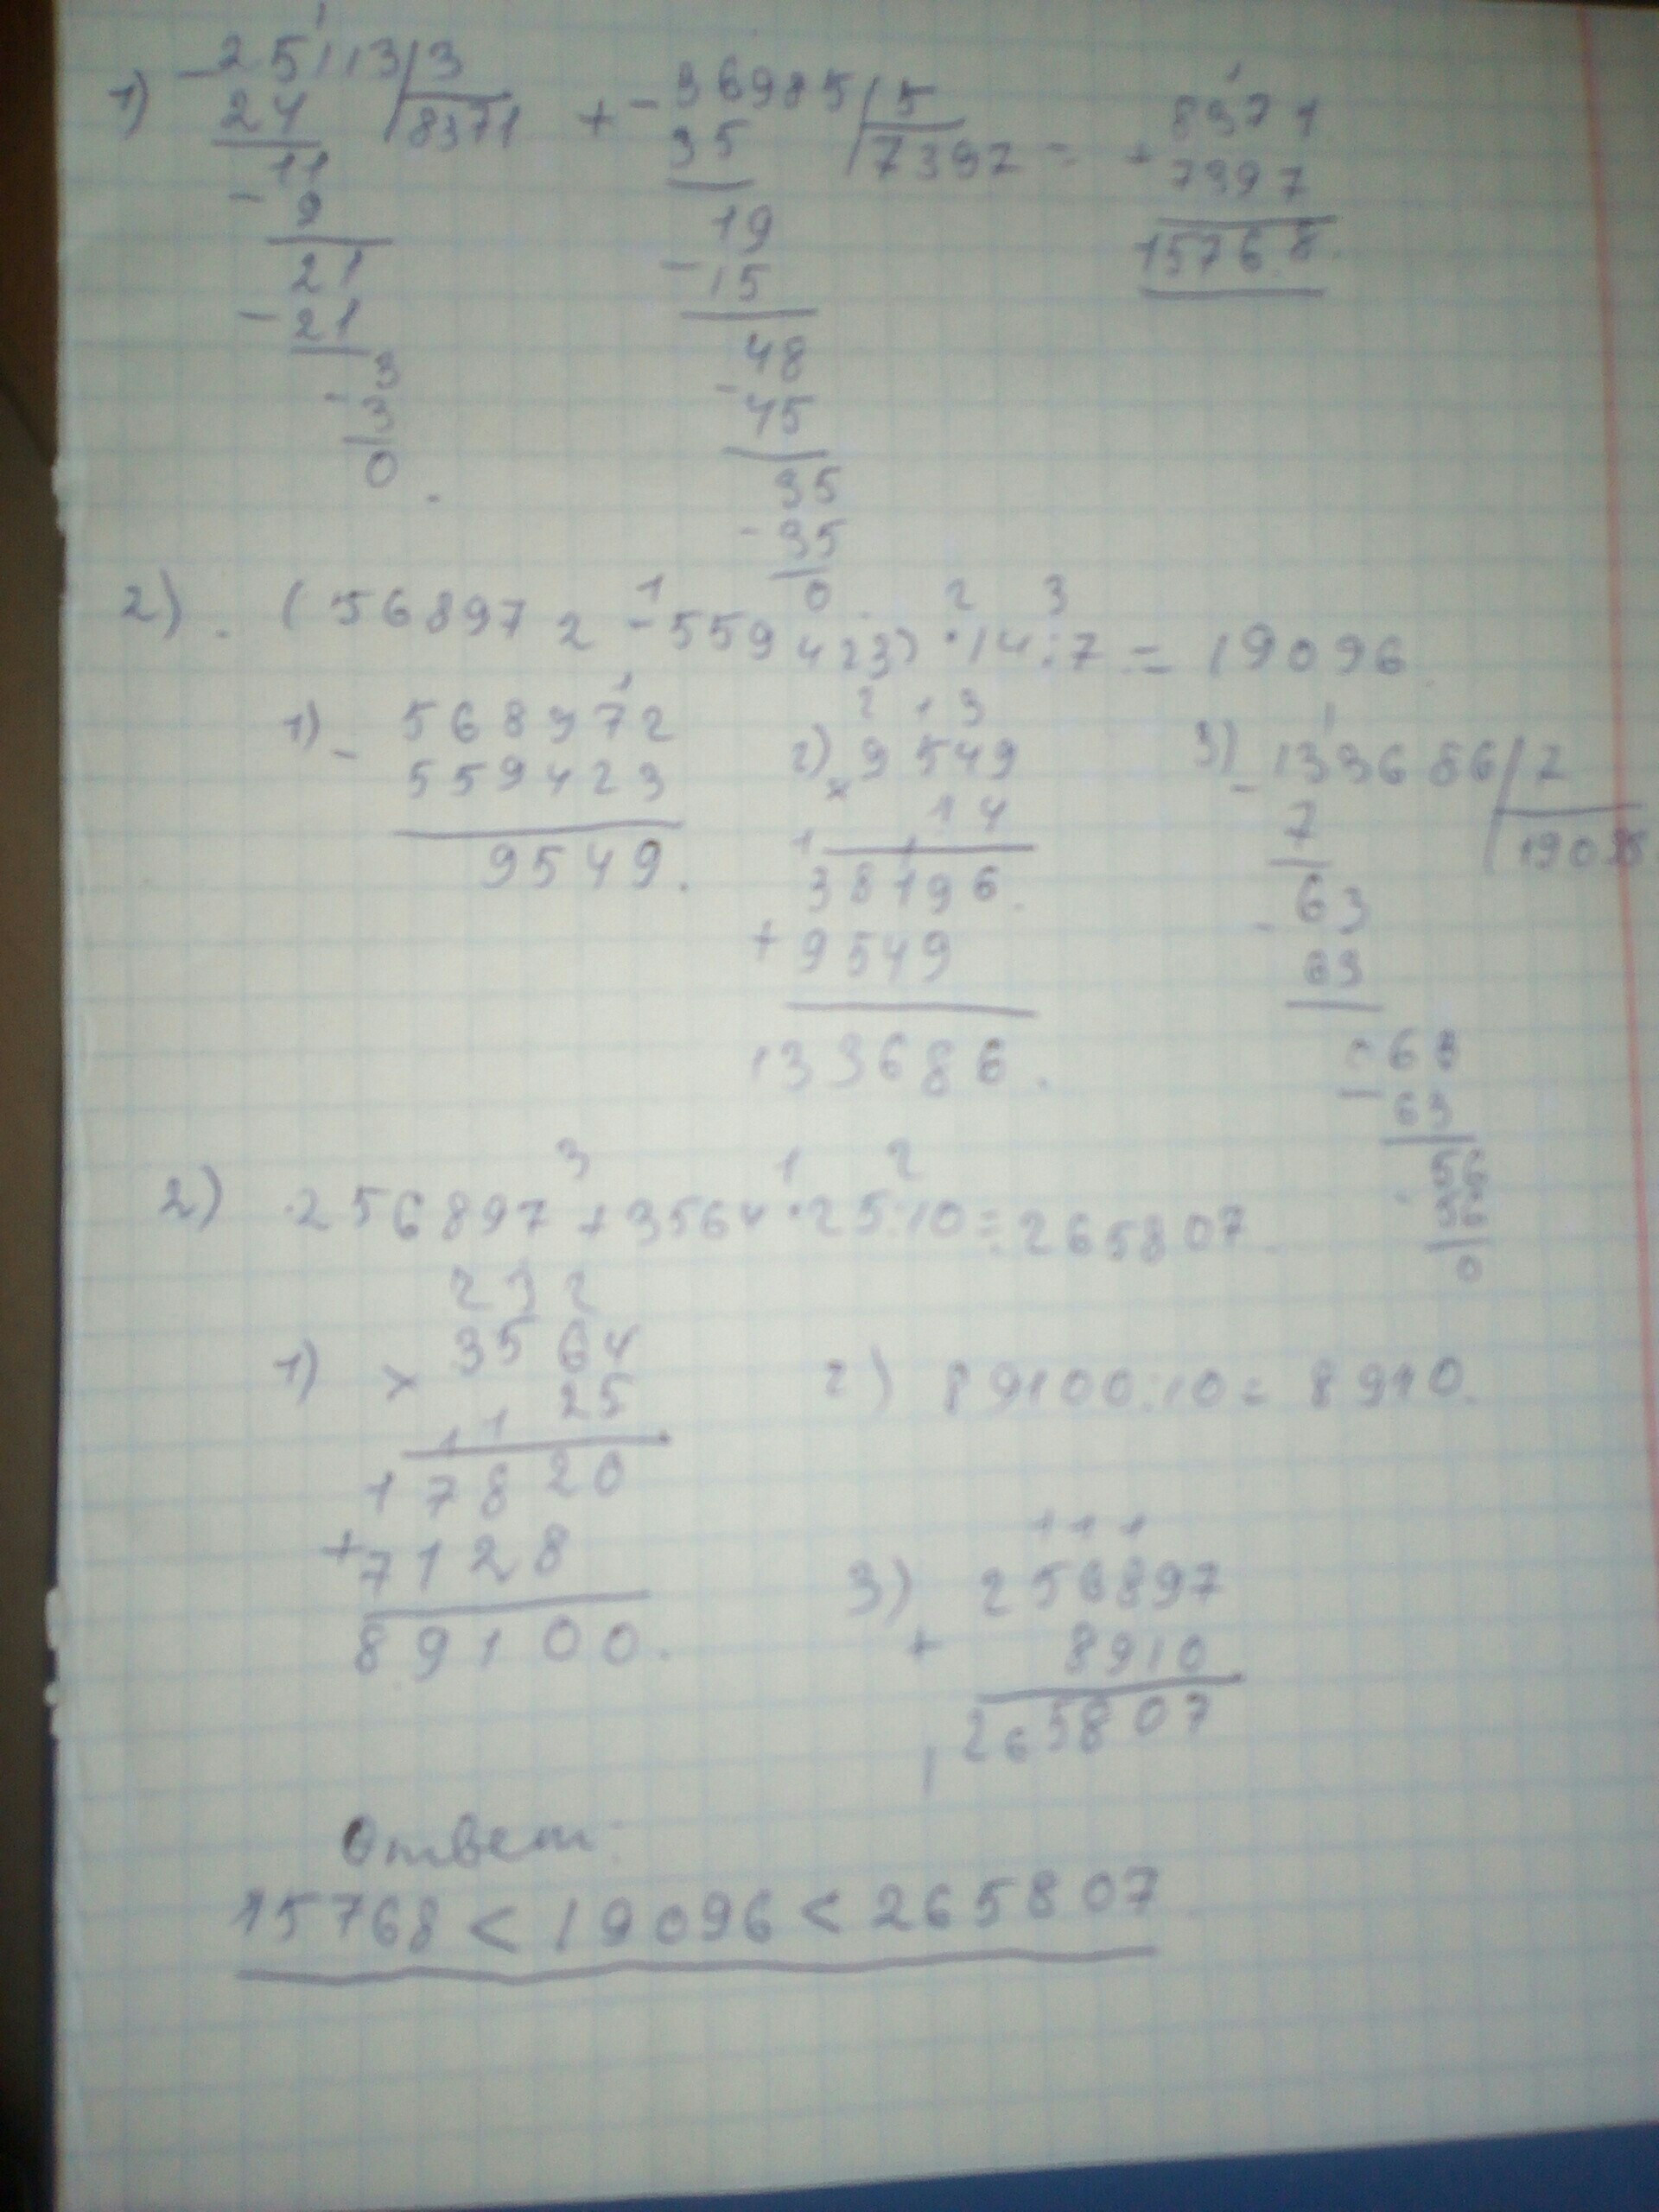 1) - 25113 | 3 + - 36985 | 5 = + 8371
24 | 8371 35 | 7397 7397
11 19 15768.
- 9 - 15
21 48
- 21 - 45
3 35
- 3 - 35
0. 0
2). (568972 - 559423) · 14 : 7 = 19096.
1) - 568972
559423
9549.
2) × 9549
14
38196.
+ 9549
133686.
3) - 133686 | 7
7
- 63
63
068
- 63
56
- 56
0
2) 256897 + 3564 · 25 : 10 = 265807.
1) × 3564
25
17820
+ 7128
89100.
2) 89100 : 10 = 8910.
3) 256897
+ 8910
265807
Ответ:
15768 < 19096 < 265807.